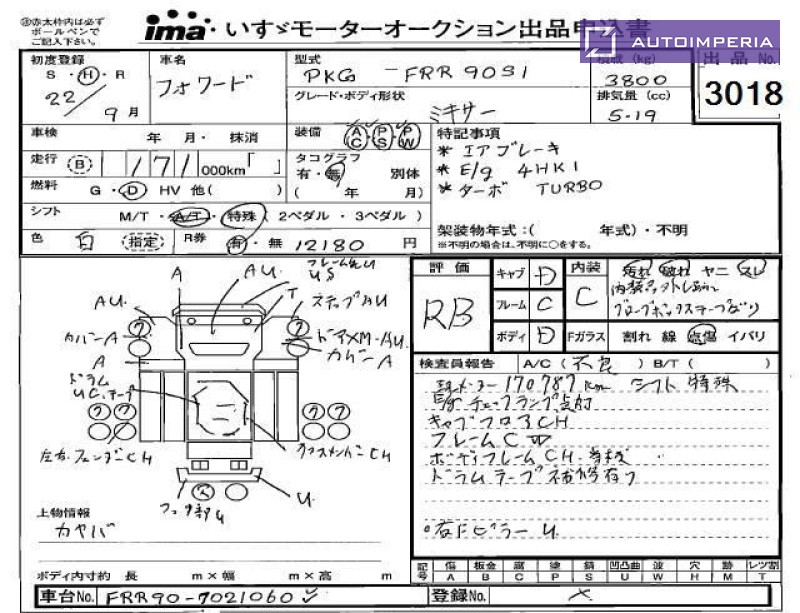 ※赤太枠内は必ず
ボールペンで
ご記入下さい。
ima いすゞモーターオークション出品申込書
AUTOIMPERIA
初度登録
S・H・R
22/9月
車名
フォワード
型式
PKG-FRR90S1
グレード・ボディ形状
ミキサー
(kg)
3800
排気量(cc)
5.19
出品No.
3018
車検 年 月・ 抹消
走行 B 171,000km「 」
燃料 G・D HV 他( )
シフト M/T・A/T・特殊(2ペダル・3ペダル)
色 白 指定 R券 有・無 12180円
装備 AC PS PW
タコグラフ
有・無 別体
( 年 月)
特記事項
* エアブレーキ
* E/g 4HK1
* ターボ TURBO
架装物年式:( 年式)・不明
※不明の場合は、不明に○をする。
フレーム
US
A
AU
T
ステップAU
AU
カバーA
A
ドアXM・AU
カバーA
ドラム
UC.テープ
左右.フェンダーCH
CH
U
上物情報
カヤバ
ボディ内寸約 長 m×幅 m×高 m
評価
RB
キャブ D
フレーム C
ボディ D
内装 C
汚れ 破れ ヤニ スレ
グローブボックステープ
Fガラス 割れ 線 点傷 イバリ
検査員報告 A/C(不良)B/T( )
メーター170787km シフト特殊
E/gチェックランプ点灯
キャブフロアCH
フレームCW
ボディフレームCH.
ドラムテープ補修有り
○右Fピラー U
記号
傷 A
板金 B
腐 C
塗 P
錆 S
凹凸曲 U
波 W
穴 H
跡 M
レツ割 T
車台No. FRR90-7021060
登録No.